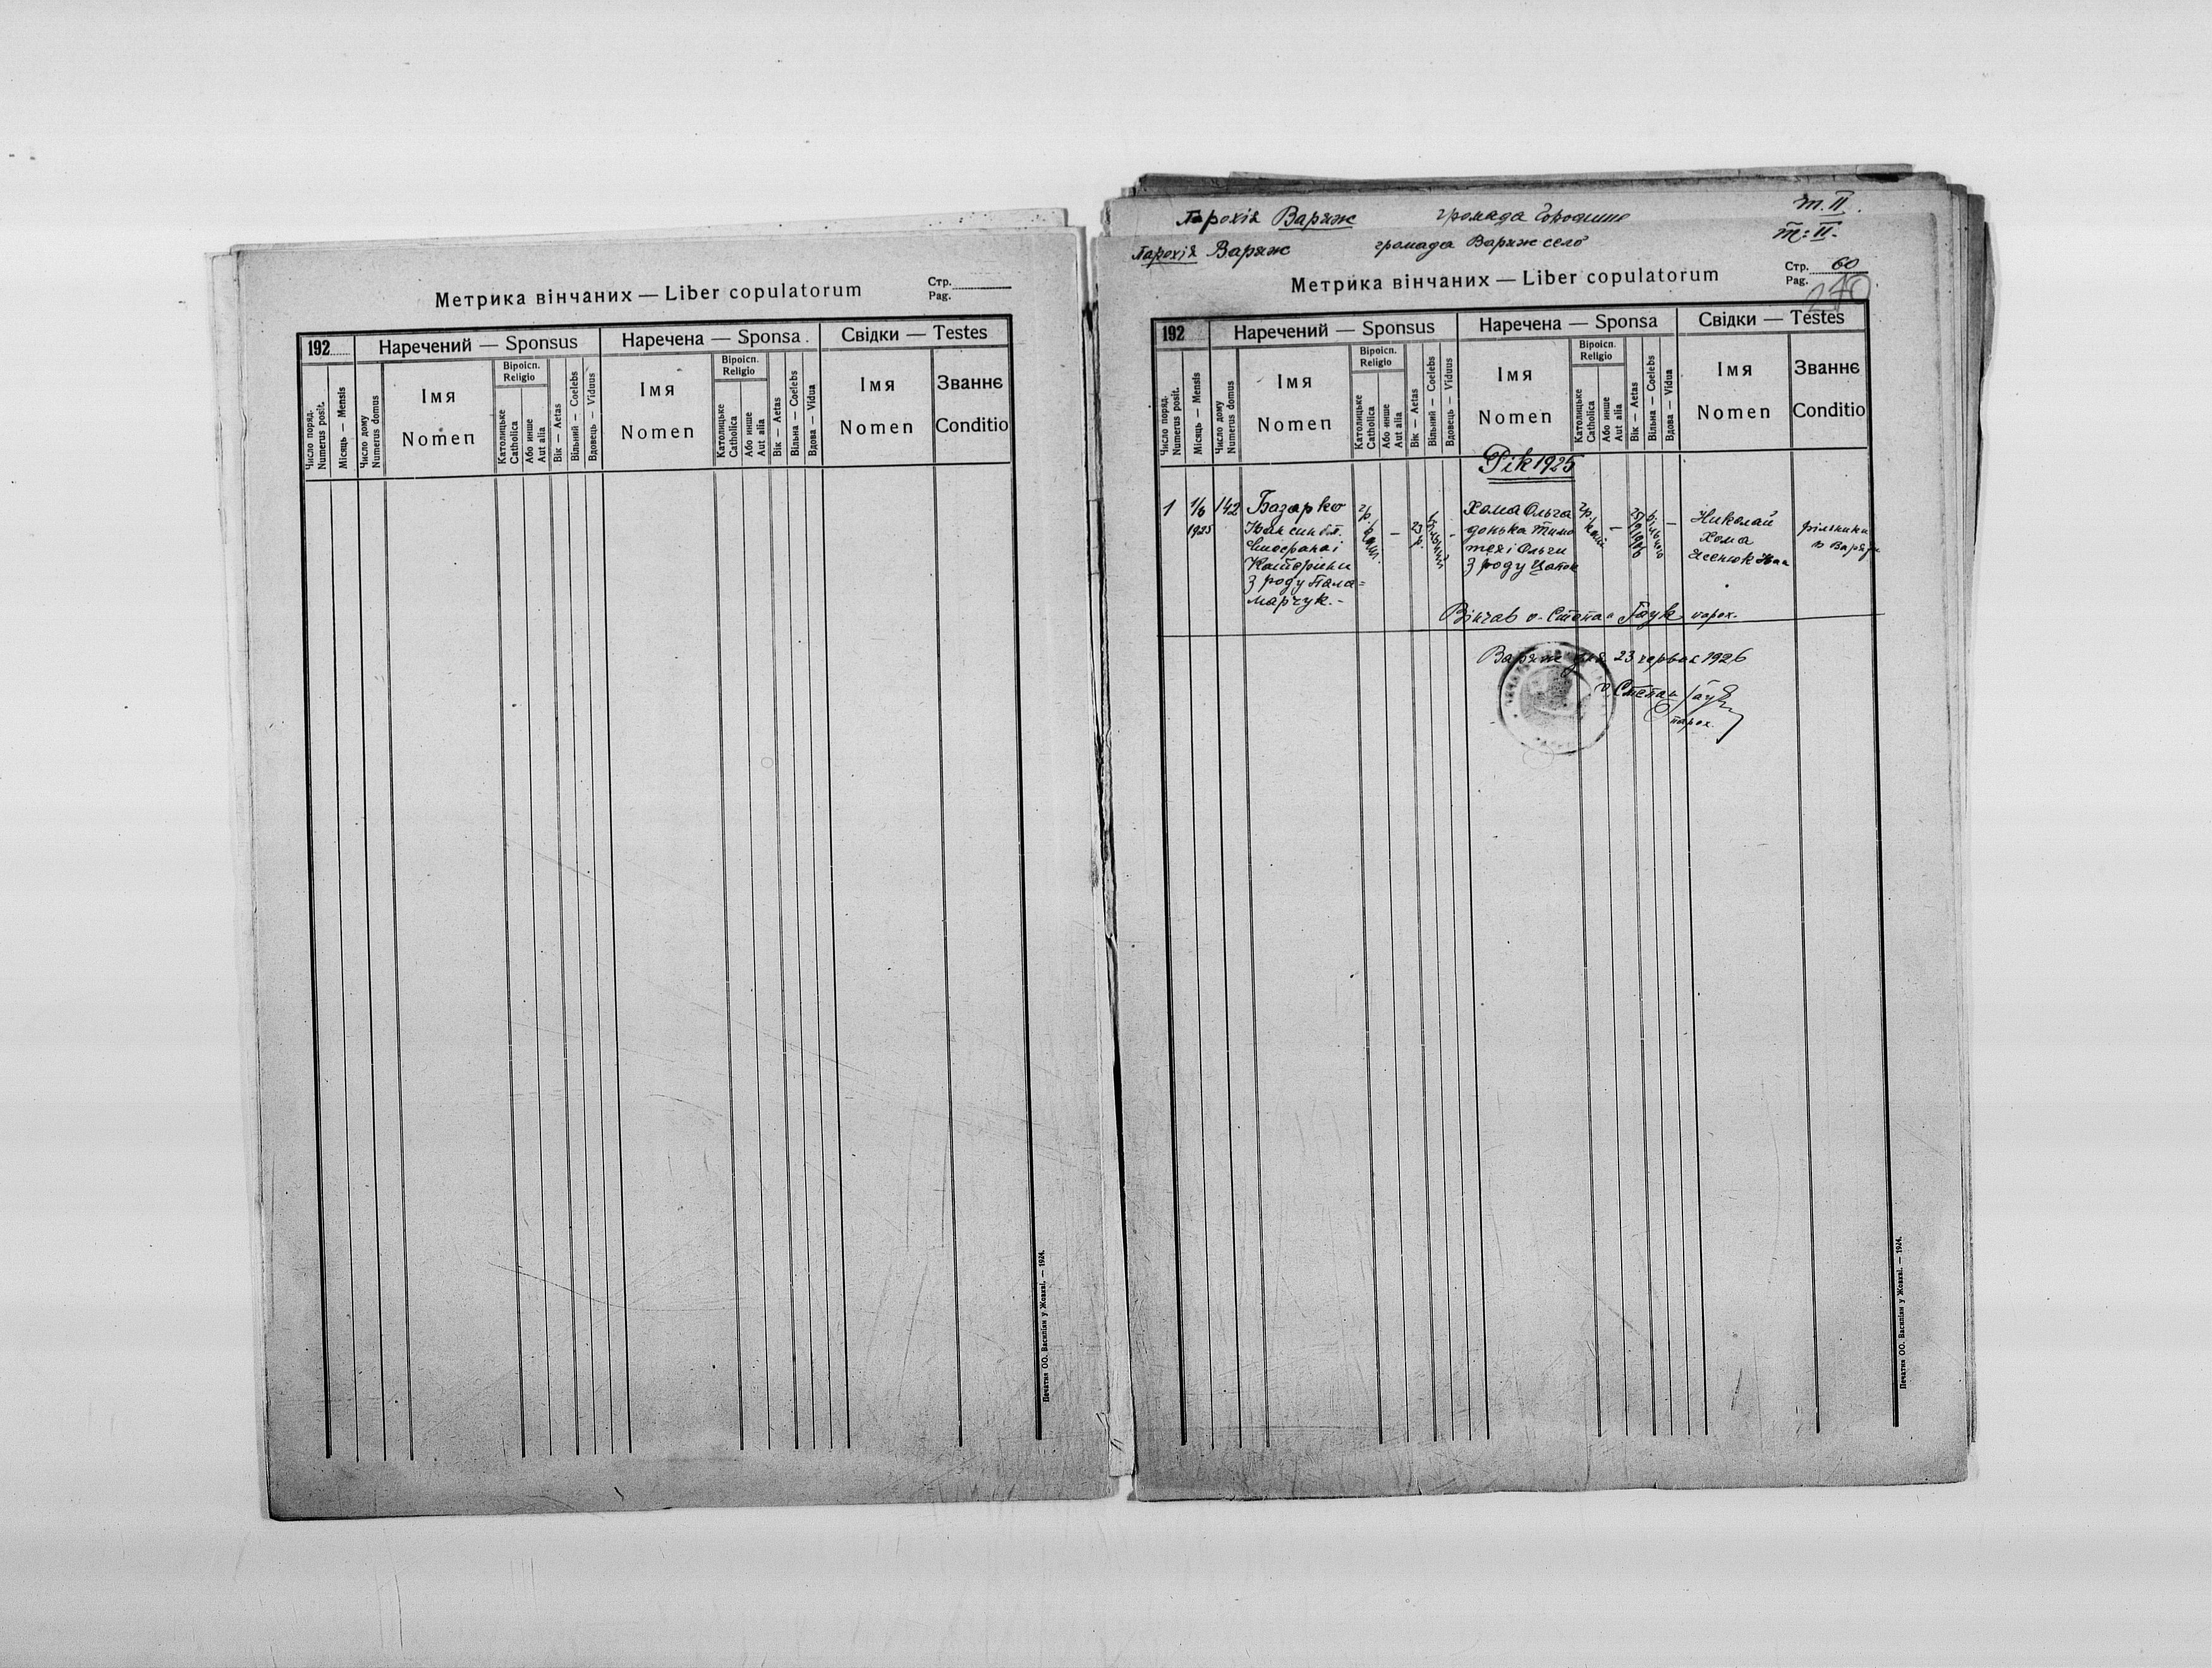 Метрика вінчаних — Liber copulatorum
Стр.
Pag.
192
Наречений — Sponsus
Наречена — Sponsa
Свідки — Testes
Число поряд.
Numerus posit.
Місяць — Mensis
Число дому
Numerus domus
Імя
Nomen
Віроісп.
Religio
Католицьке
Catholica
Або инше
Aut alia
Вік — Aetas
Вільний — Coelebs
Вдовець — Viduus
Імя
Nomen
Віроісп.
Religio
Католицьке
Catholica
Або инше
Aut alia
Вік — Aetas
Вільна — Coelebs
Вдова — Vidua
Імя
Nomen
Званнє
Conditio
Печатня ОО. Василіян у Жовкві. — 1924.
Парохія Варяж громада т. II.
Парохія Варяж громада Варяж село т: II.
Метрика вінчаних — Liber copulatorum
Стр. 60
Pag.
192
Наречений — Sponsus
Наречена — Sponsa
Свідки — Testes
Число поряд.
Numerus posit.
Місяць — Mensis
Число дому
Numerus domus
Імя
Nomen
Віроісп.
Religio
Католицьке
Catholica
Або инше
Aut alia
Вік — Aetas
Вільний — Coelebs
Вдовець — Viduus
Імя
Nomen
Віроісп.
Religio
Католицьке
Catholica
Або инше
Aut alia
Вік — Aetas
Вільна — Coelebs
Вдова — Vidua
Імя
Nomen
Званнє
Conditio
Рік 1925
1
1/6
1925
142
Базарко
Іван син бл.
Катерини
з роду Пала=
марчук.-
гр.
кат.
—
23
р.
вільний
-
Хома Ольга
донька Тимо
тея і Ольги
з роду
гр.
кат.
—
вільна
—
Николай
Хома
Ясенюк Іван
рільники
з Варяжа
Вінчав о. Степан Гаук парох.
Варяж дня 23 червня 1926
о. Степан Гаук
парох.
Печатня ОО. Василіян у Жовкві. — 1924.